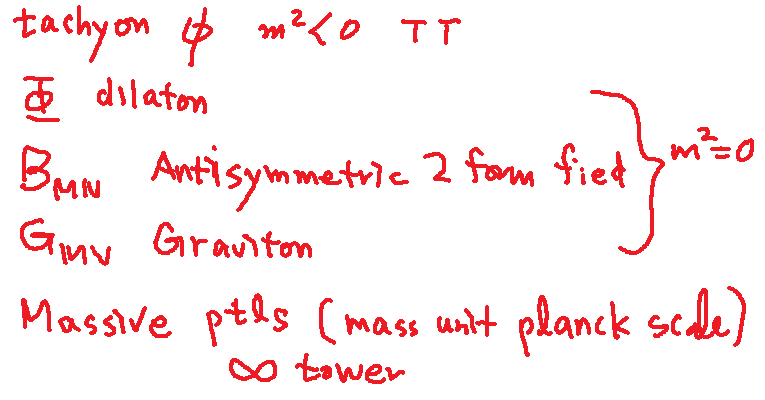 tachyon ϕ m²<0 TT
Φ dilaton
B_MN Antisymmetric 2 form fied } m²=0
G_MN Graviton
Massive ptls (mass unit planck scale)
∞ tower